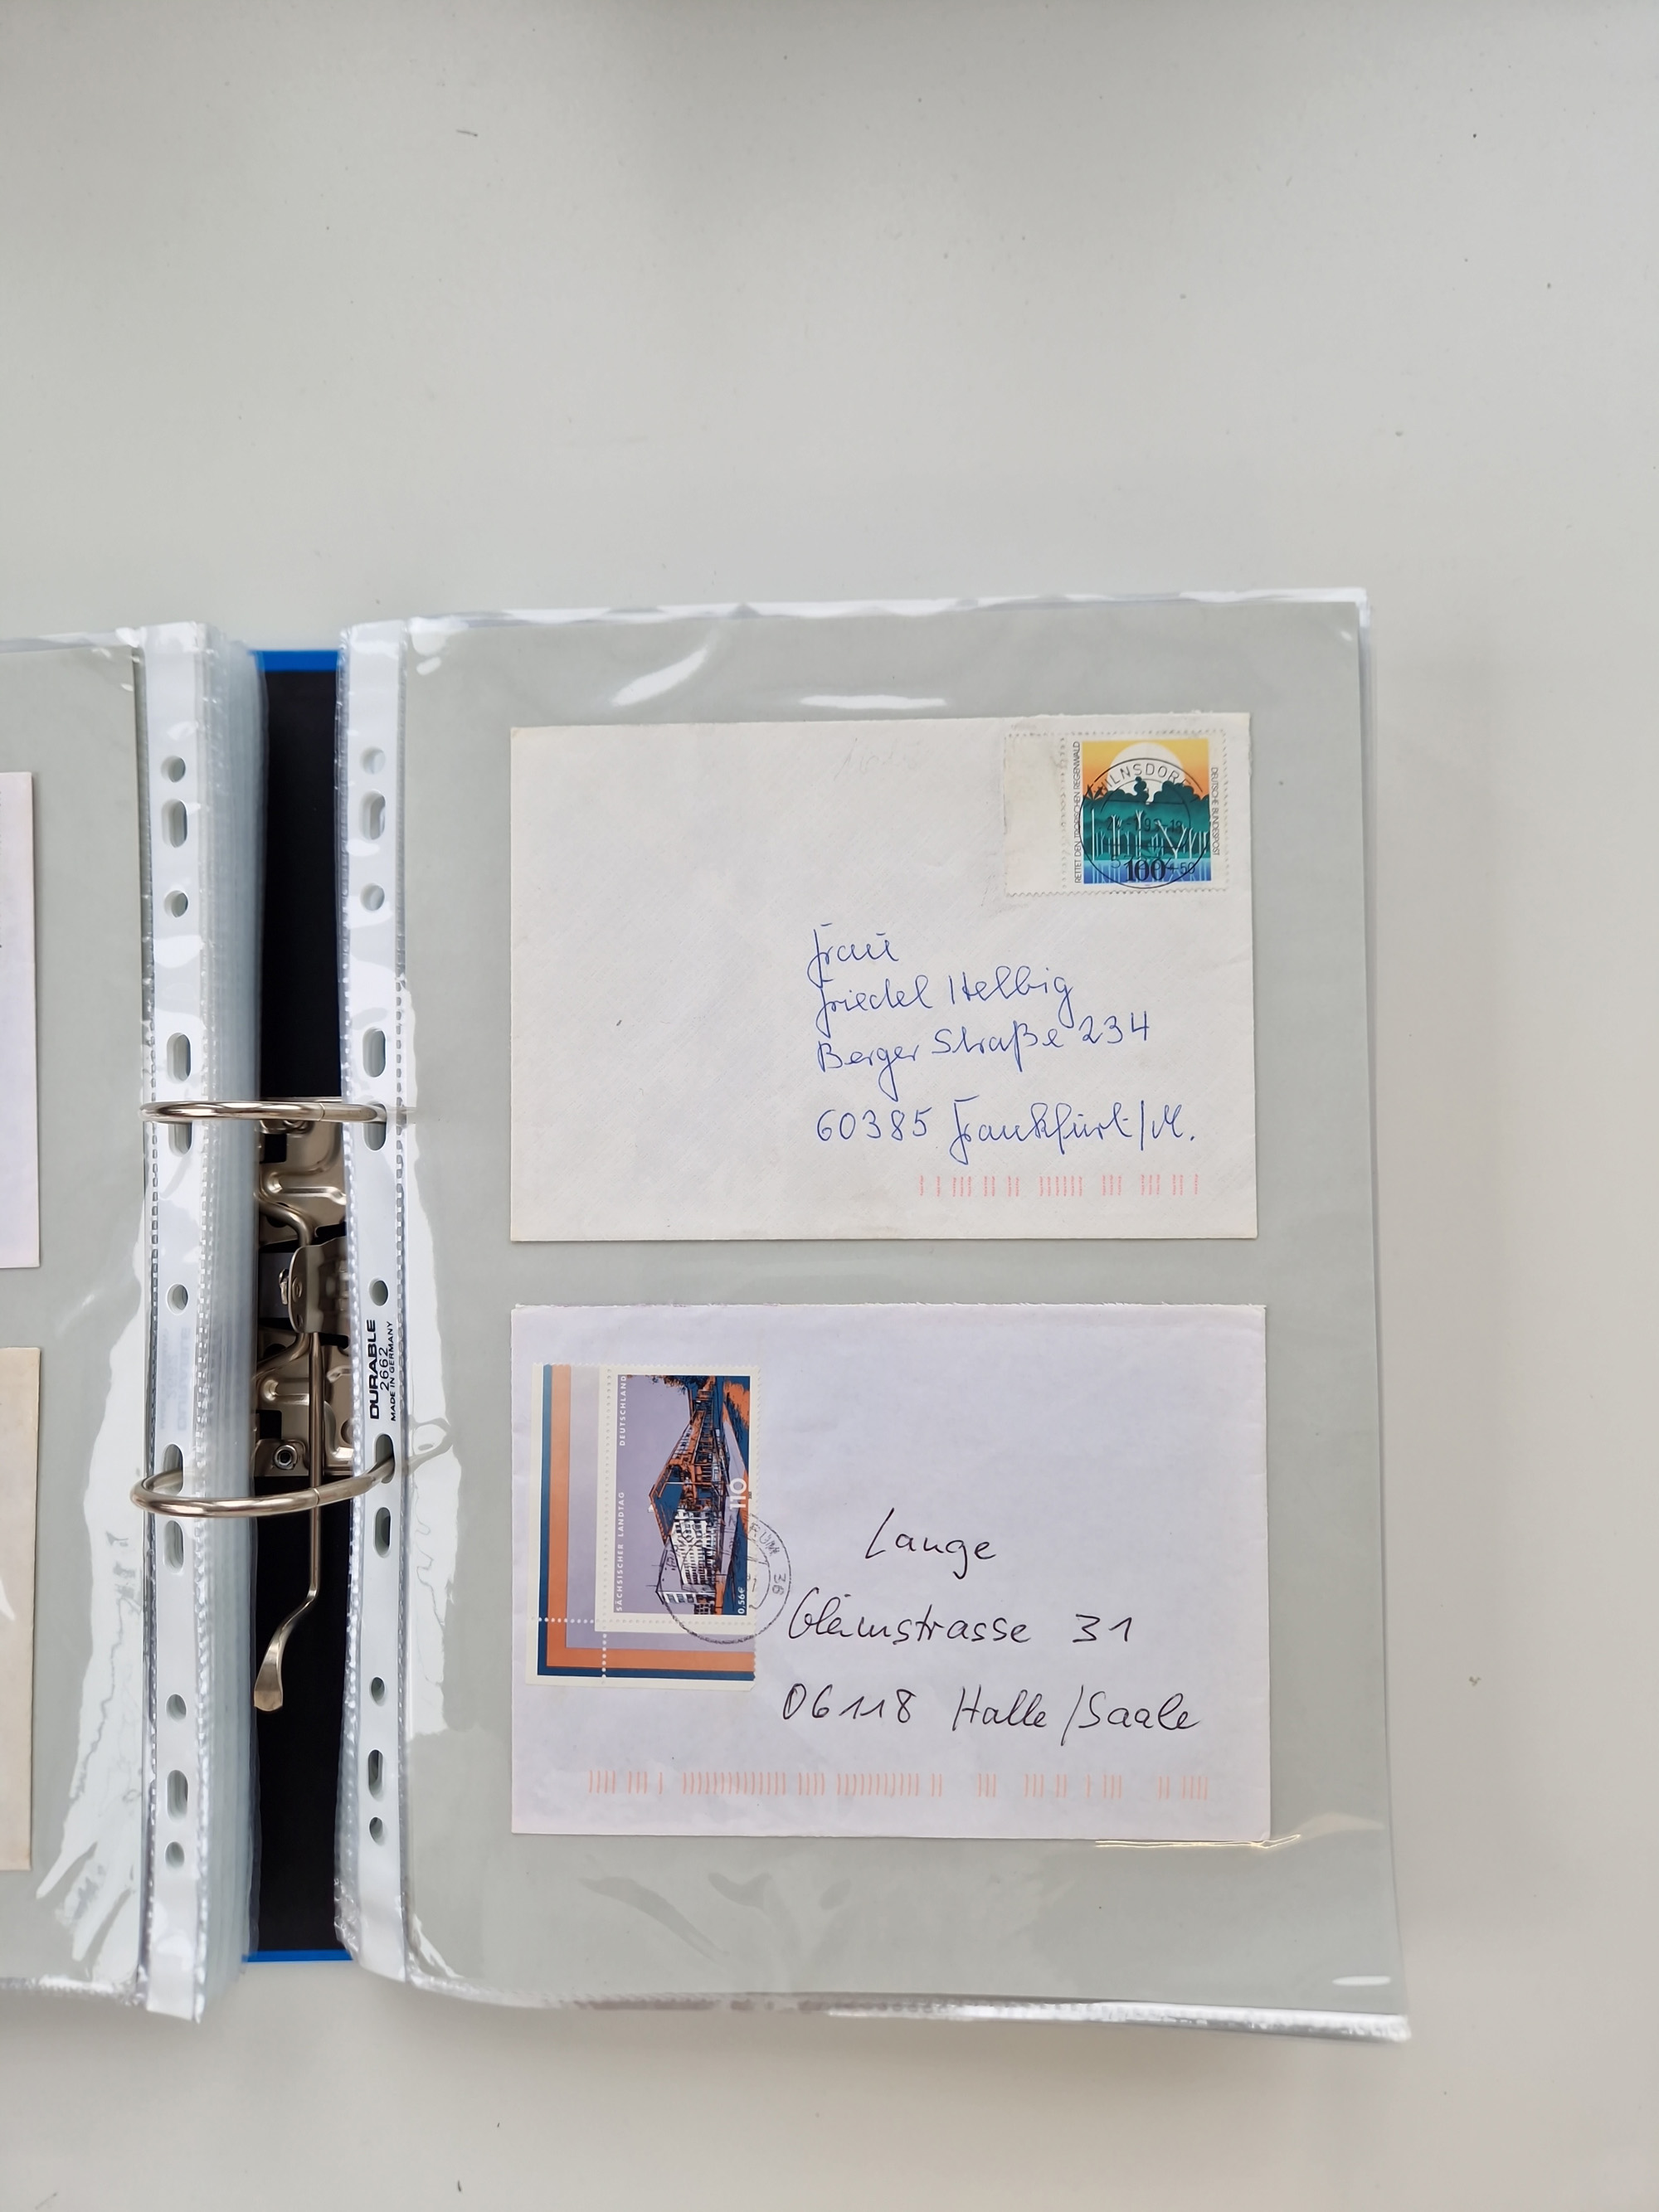 RETTET DEN TROPISCHEN REGENWALD
DEUTSCHE BUNDESPOST
100
WILNSDORF
Frau
Friedel Helbig
Berger Straße 234
60385 Frankfurt/M.
DURABLE
2662
MADE IN GERMANY
SÄCHSISCHER LANDTAG DEUTSCHLAND
110
0,56€
36
Lange
Gleimstrasse 31
06118 Halle/Saale